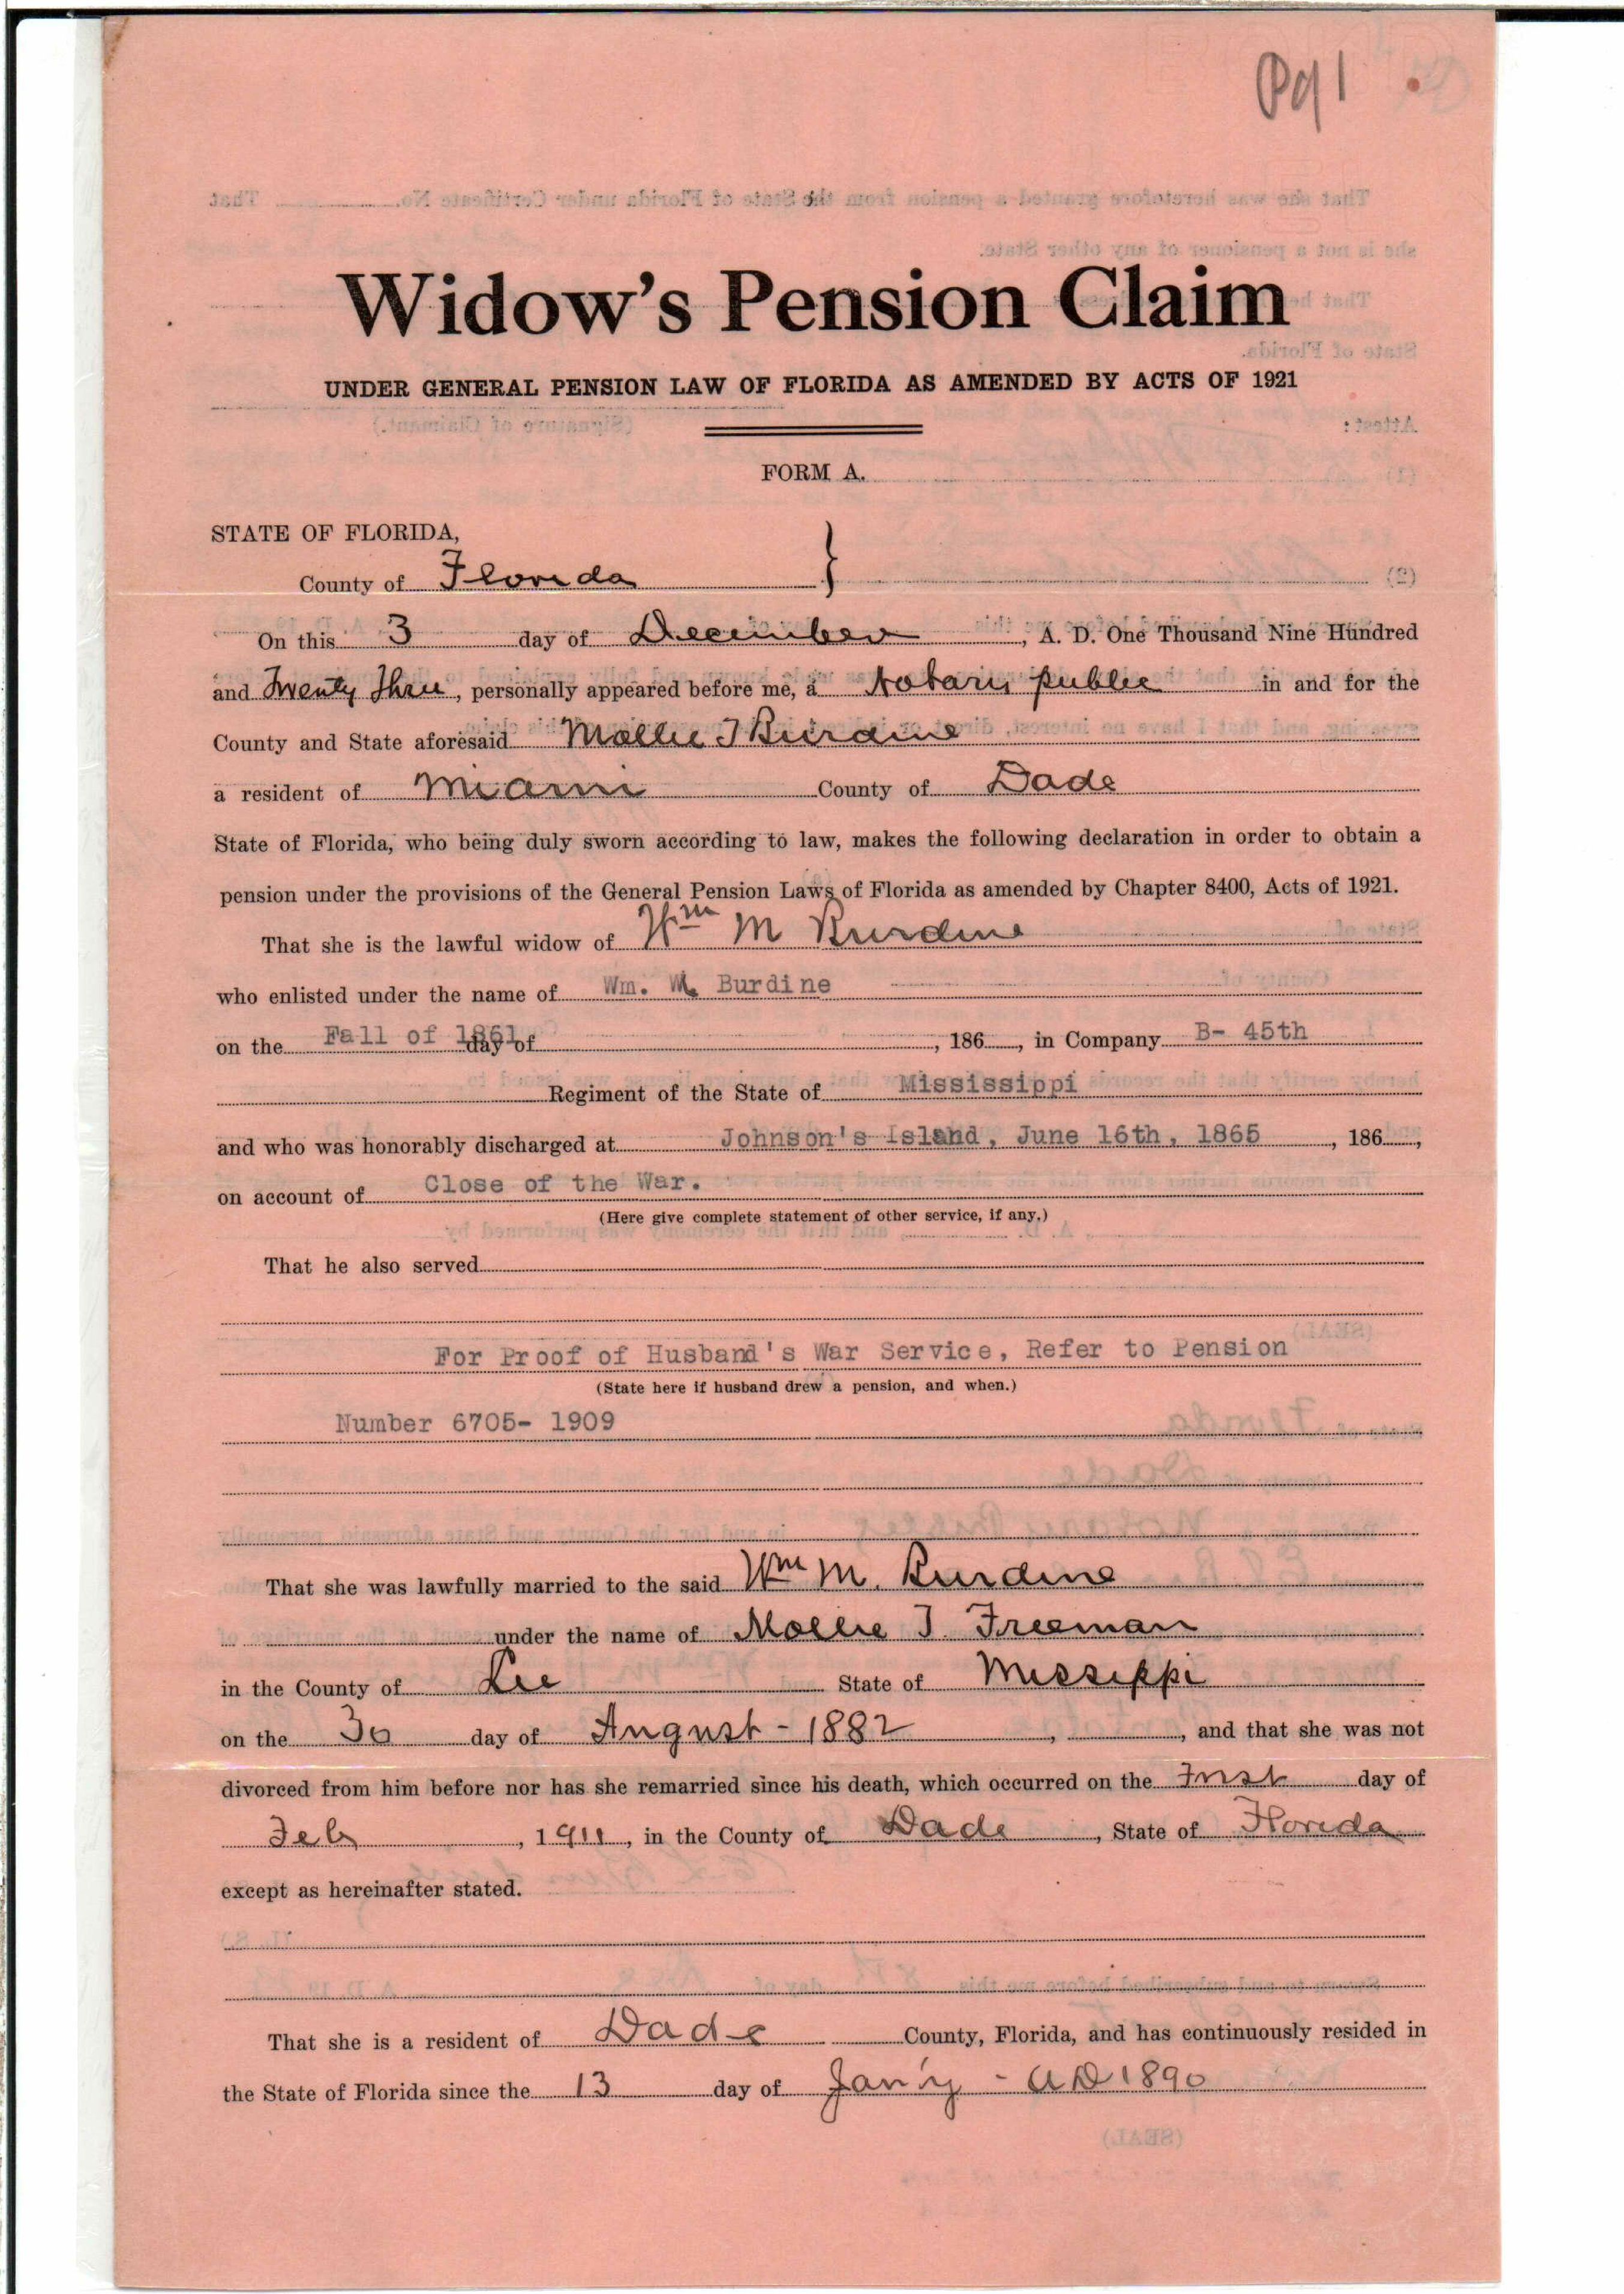 Pg 1
Widow's Pension Claim
UNDER GENERAL PENSION LAW OF FLORIDA AS AMENDED BY ACTS OF 1921
FORM A.
STATE OF FLORIDA,
County of Florida
On this 3 day of December, A. D. One Thousand Nine Hundred
and Twenty Three, personally appeared before me, a Notary public in and for the
County and State aforesaid Mollie J Burdine
a resident of Miami County of Dade
State of Florida, who being duly sworn according to law, makes the following declaration in order to obtain a
pension under the provisions of the General Pension Laws of Florida as amended by Chapter 8400, Acts of 1921.
That she is the lawful widow of Wm M Burdine
who enlisted under the name of Wm. M. Burdine
on the Fall of 1861 day of , 186 , in Company B- 45th
Regiment of the State of Mississippi
and who was honorably discharged at Johnson's Island, June 16th, 1865 , 186 ,
on account of Close of the War.
(Here give complete statement of other service, if any.)
That he also served
For Proof of Husband's War Service, Refer to Pension
(State here if husband drew a pension, and when.)
Number 6705- 1909
That she was lawfully married to the said Wm M. Burdine
under the name of Mollie J. Freeman
in the County of Lee State of Missippi
on the 30 day of August - 1882 , , and that she was not
divorced from him before nor has she remarried since his death, which occurred on the First day of
Feb , 1911 , in the County of Dade , State of Florida
except as hereinafter stated.
That she is a resident of Dade County, Florida, and has continuously resided in
the State of Florida since the 13 day of Jan'y - AD 1890